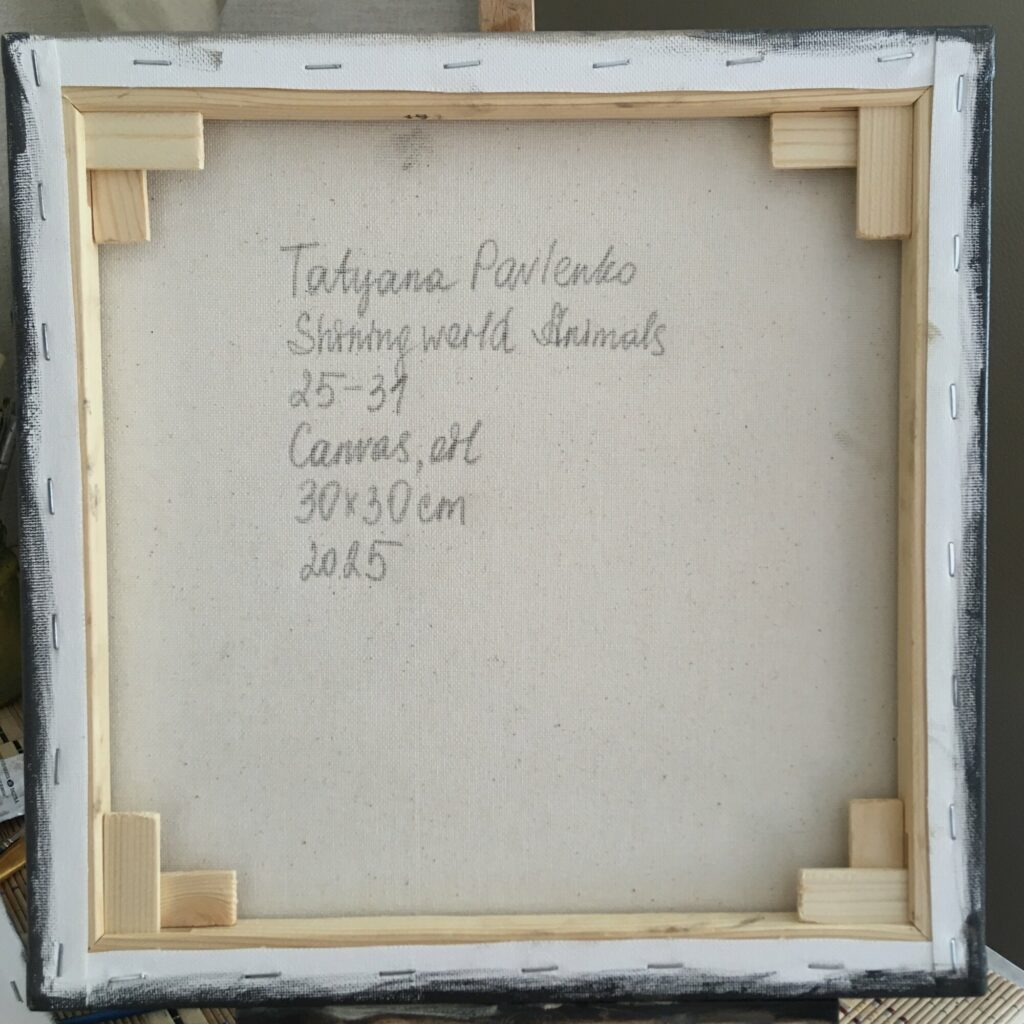 Tatyana Pavlenko
Shining world Animals
25-31
Canvas, oil
30x30 cm
2025